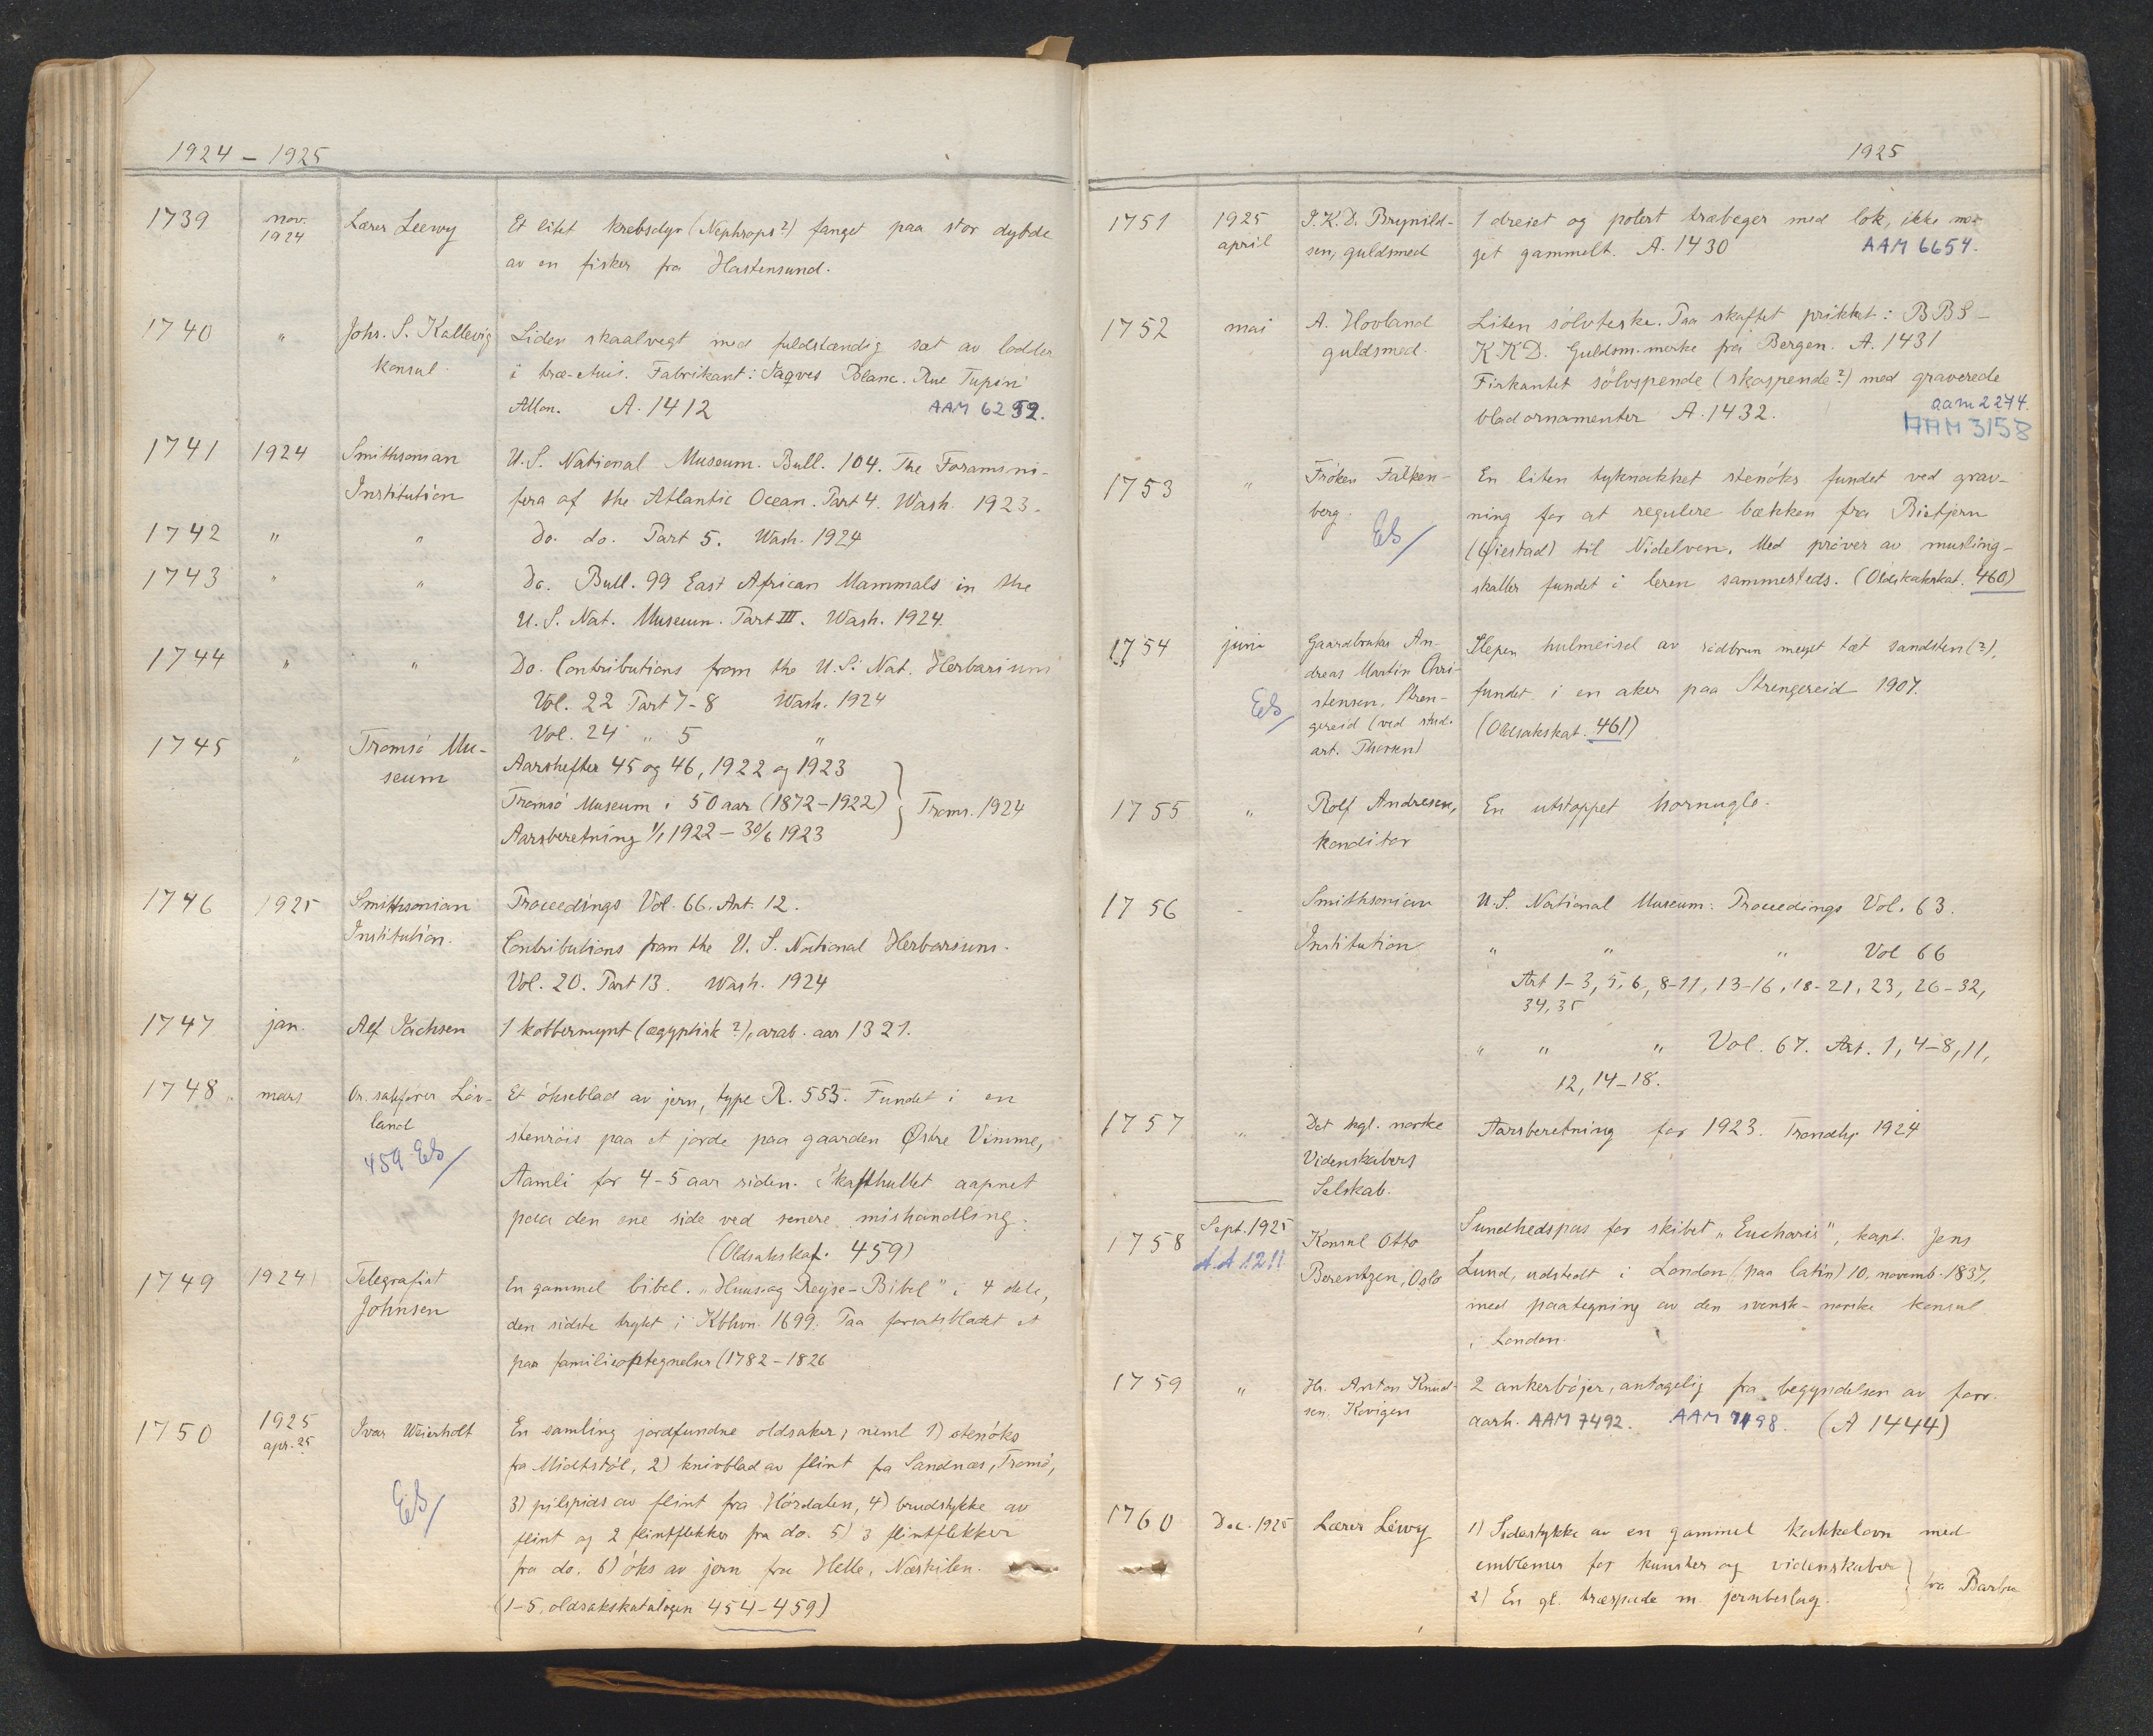 1924 – 1925
1739 nov. 1924 Lærer Leewy Et litet krebsdyr (Nephrops?) fanget paa stor dybde
av en fisker fra Hastensund.
1740 " Johs. S. Kallevig Liden skaalvegt med fuldstændig sæt av lodder
konsul. i træ-etuis. Fabrikant: Jaques Blanc. Rue Tupin
A. 1412 AAM 6252.
1741 1924 Smithsonian U.S. National Museum. Bull. 104. The Foramini-
Institution fera of the Atlantic Ocean. Part 4. Wash. 1923.
1742 " " Do. do. Part 5. Wash. 1924
1743 " " Do. Bull. 99 East African Mammals in the
U.S. Nat. Museum. Part III. Wash. 1924.
1744 " " Do. Contributions from the U.S. Nat. Herbarium
Vol. 22 Part 7-8 Wash. 1924
Vol. 24 " 5 "
1745 " Tromsö Mu- Aarshefter 45 og 46, 1922 og 1923
seum Tromsö Museum i 50 aar (1872-1922) } Troms. 1924
Aarsberetning 1/1 1922 – 30/6 1923
1746 1925 Smithsonian Proceedings Vol. 66. Art. 12.
Institution. Contributions from the U.S. National Herbarium.
Vol. 20. Part 13. Wash. 1924
1747 jan. Alf Isachsen 1 kobbermynt (ægyptisk?), arab. aar 1321.
1748. mars Or. sakfører Löv- Et økseblad av jern, type R. 553. Fundet i en
land stenröis paa et jorde paa gaarden Østre Vimme,
459 EB/ Aamli for 4-5 aar siden. Skafthullet aapnet
paa den ene side ved senere mishandling.
(Oldsakskat. 459)
1749 1924 Telegrafist En gammel bibel. "Huus og Reyse-Bibel" i 4 dele,
Johnsen den sidste trykt i Kbhvn. 1699. Paa forsatsbladet et
par familieoptegnelser (1782-1826
1750 1925 apr. 25 Ivar Weierholt En samling jordfundne oldsaker, neml 1) stenöks
fra Midtstöl, 2) knivblad av flint fra Sandnæs, Tromö,
EB/ 3) pilspids av flint fra Hördalen, 4) brudstykke av
flint og 2 flintflekker fra do. 5) 3 flintflekker
fra do. 6) öks av jern fra Helle, Næskilen.
(1-5, oldsakskatalogen 454-459)
1925
1751 1925 april J.K.D. Brynild- 1 dreiet og polert træbæger med lok, ikke me-
sen, guldsmed get gammelt. A. 1430 AAM 6654.
1752 mai A. Hovland Liten sölvteske. Paa skaftet prikket: BBS –
guldsmed. K.K.D. Guldsm. merke fra Bergen. A. 1431
Firkantet sölvspende (skospende?) med graverede
aam 2274.
bladornamenter A. 1432. AAM 3158
1753 " Fröken Falken- En liten tyknakket stenöks fundet ved grav-
berg. ning for at regulere bækken fra Bietjern
EB/ (Øiestad) til Nidelven. Med pröver av musling-
skaller fundet i leren sammesteds. (Oldsakskat. 460)
1754 juni Gaardbruker An- Slepen hulmeisel av rödbrun meget tæt sandsten (?),
dreas Martin Chri- fundet i en aker paa Strengereid 1907.
EB/ stensen, Stren- (Oldsakskat. 461)
gereid (ved stud.
art. Thorsen)
1755 " Rolf Andresen, En utstoppet hornugle.
konditor
1756 - Smithsonian U.S. National Museum: Proceedings Vol. 63.
Institution " " " Vol 66
Art 1-3, 5, 6, 8-11, 13-16, 18-21, 23, 26-32,
34, 35
" " " Vol. 67. Art. 1, 4-8, 11,
12, 14-18.
1757 " Det kgl. norske Aarsberetning for 1923. Trondhj. 1924
Videnskabers
Selskab.
1758 Sept. 1925 Konsul Otto Sundhedspas for skibet "Eucharis", kapt. Jens
A.A 1211 Berentzen, Oslo Lund, udstedt i London (paa latin) 10. novemb. 1837,
med paategning av den svensk-norske konsul
i London.
1759 " Hr. Anton Knud- 2 ankerböjer, antagelig fra begyndelsen av forr.
sen. Kovigen aarh. AAM 7492. AAM 7498. (A 1444)
1760 Dec. 1925 Lærer Léwy 1) Sidestykke av en gammel kakkelovn med
emblemer for kunster og videnskaber } fra Barbu
2) En gl. træspade m. jernbeslag.